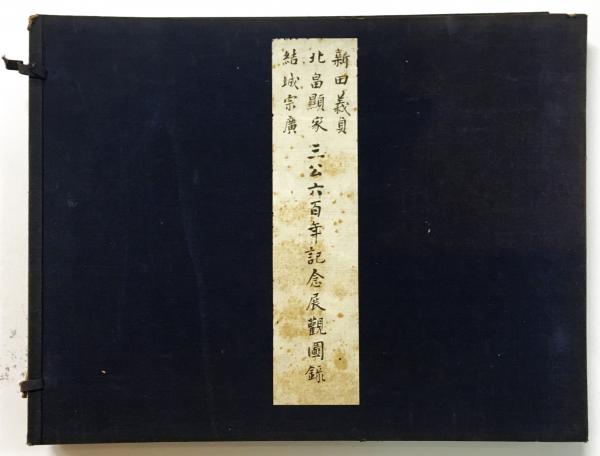 新田義貞
北畠顯家
結城宗廣
三公六百年記念展觀圖錄